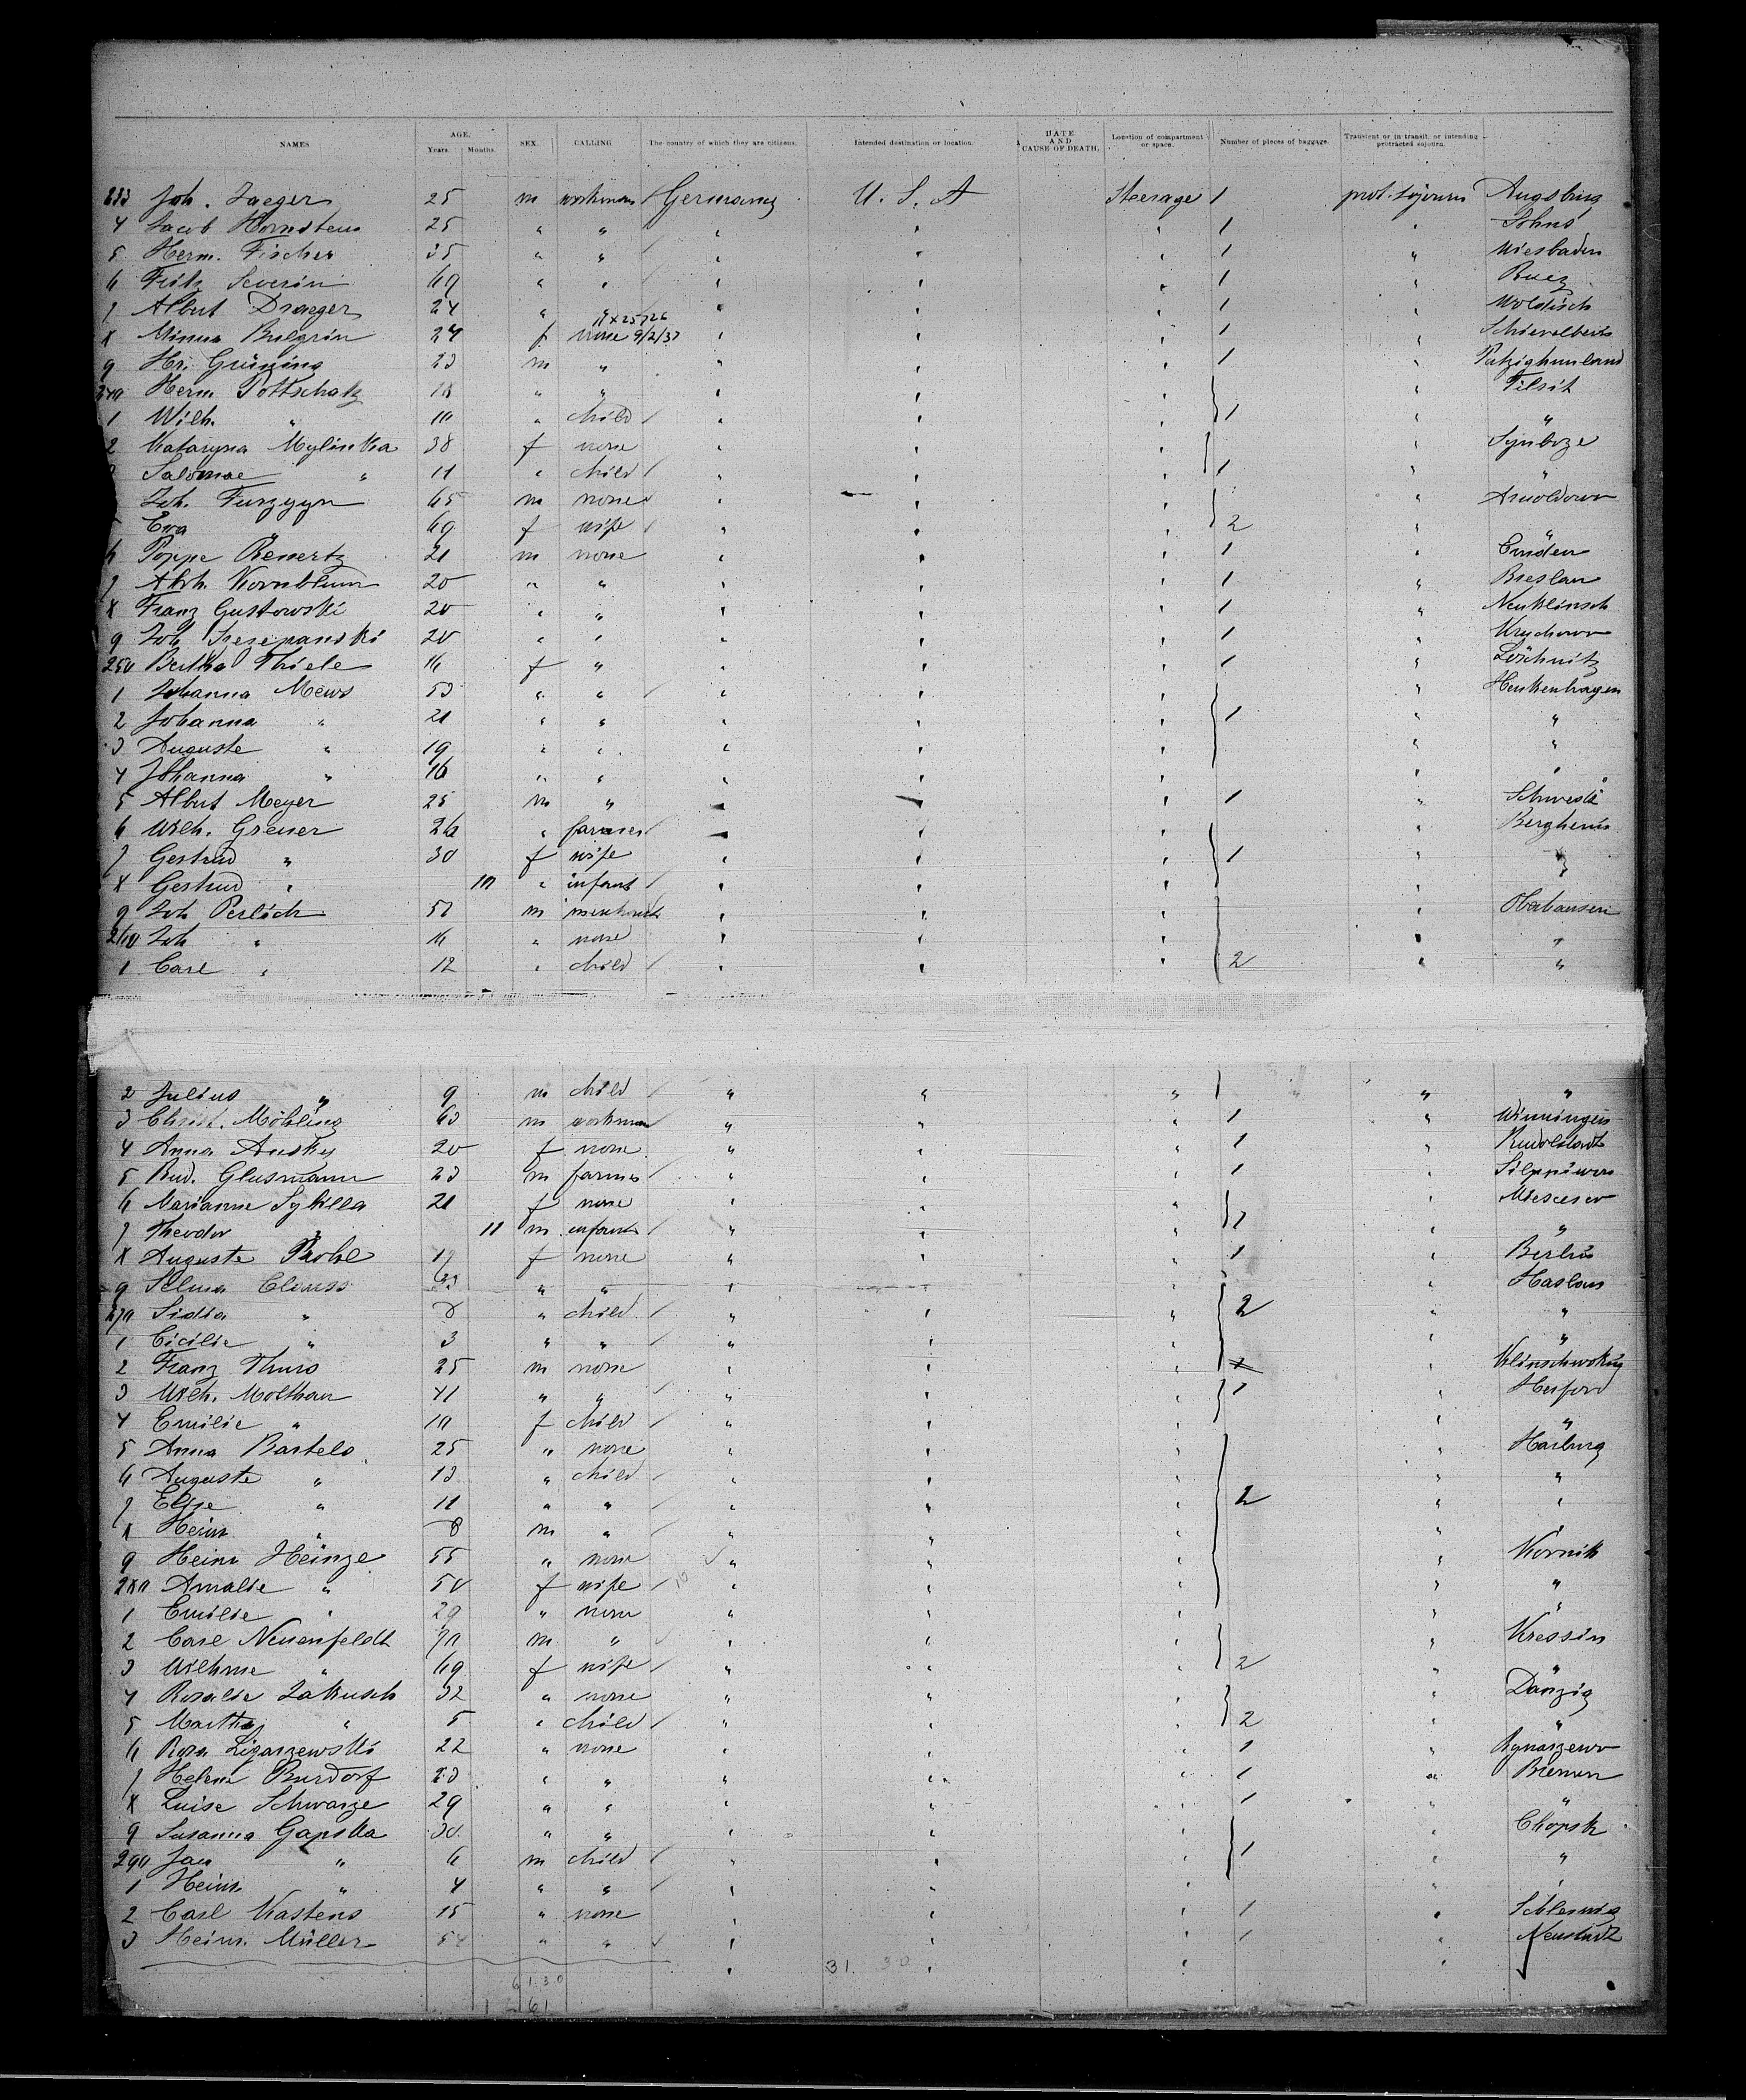 NAMES AGE. Years. Months. SEX. CALLING The country of which they are citizens. Intended destination or location. DATE AND CAUSE OF DEATH. Location of compartment or space. Number of pieces of baggage. Transient or in transit, or intending protracted sojourn.
233 Joh. Jaeger 25 m workman Germany U. S. A Steerage 1 prot. sojourn Augsburg
4 Jacob 25 " " " " " 1 "
5 Herm. Fischer 35 " " " " " 1 " Wiesbaden
6 Fritz Severin 69 " " " " " 1 "
7 Albert Draeger 24 " " " " " 1 "
X 25726
8 Minna Bulgrin 24 f none 9/2/37 " " " 1 "
9 Hr. Grüning 23 m " " " " 1 "
240 Herm Pottschatz 18 " " " " " " Tilsit
1 Wilh. " 10 " child " " " 1 " "
2 Kataryna Mylinska 38 f none " " " "
Salomae " 11 " child " " " 1 " "
Joh. 65 m none " " " "
5 Eva 69 f wife " " " 2 " "
6 Poppe Renertz 21 m none " " " 1 " Emden
7 Abrh. Kornblum 20 " " " " " 1 " Breslau
8 Franz Gustowski 20 " " " " " 1 "
9 Joh Szczepanski 20 " " " " " 1 "
250 Bertha Thiele 16 f " " " " 1 " Löchnitz
1 Johanna Mews 53 " " " " " " Henkenhagen
2 Johanna " 21 " " " " " 1 " "
3 Auguste " 19 " " " " " " "
4 Johanna " 16 " " " " " " "
5 Albert Meyer 25 m " " " " 1 "
6 Wilh. Greuer 26 " farmer " " " "
7 Gertrud " 30 f wife " " " 1 " "
8 Gertrud " 10 " infant " " " " "
9 Joh Perlich m merchant " " " " Oberhausen
260 Joh " 16 " none " " " " "
1 Carl " 12 " child " " " 2 " "
2 Julius " 9 m child " " " " "
3 Christ. Möhling 63 m workman " " " 1 " Winningen
4 Anna Ansky 20 f none " " " 1 " Rudolstadt
5 Rud. Glusmann 23 m farmer " " " 1 "
6 Marianne Sykilla 21 f none " " " "
7 Theodor " 11 m infant " " " 1 " "
8 Auguste Prohl 19 f none " " " 1 " Berlin
9 Selma Clauss 33 " " " " " "
270 Sidia " 8 " child " " " 2 " "
1 Cicilie " 3 " " " " " " "
2 Franz Thuro 25 m none " " " "
3 Wilh. Molthan 41 " " " " " 1 " Herford
4 Emilie " 10 f child " " " " "
5 Anna Bartels 25 " none " " " " Harburg
6 Auguste " 13 " child " " " " "
7 Elise " 11 " " " " " 2 " "
8 Heinr. " 8 m " " " " " "
9 Heinr Heinze 55 " none " " " " Kornik
280 Amalie " 50 f wife " " " " "
1 Emilie " 29 " none " " " " "
2 Carl Neuenfeldt 70 m " " " " " Kressin
3 Wilhme " 69 f wife " " " 2 " "
4 Rosalie Zakusch 32 " none " " " " Danzig
5 Martha " 5 " child " " " 2 " "
6 Rosa Ligarzewski 22 " none " " " 1 " Rynarzewo
7 Helene Burdorf 23 " " " " " 1 " Bremen
8 Luise Schwarze 29 " " " " " 1 " "
9 Susanna Gapska 30 " " " " " " Chopsk
290 Jan " 6 m child " " " 1 " "
1 Heinr. " 4 " " " " " " "
2 Carl Kastens 15 " none " " " 1 " Schleswig
3 Heinr. Müller 54 " " " " " 1 " Neustadt
" 31. 30 " " "
61.30
1 - 61